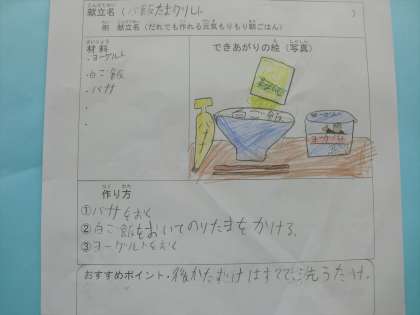 献立名（ご飯たまクリルト）
例 献立名（だれでも作れる元気もりもり朝ごはん）
材料
・ヨーグルト
・白ご飯
・バナナ
できあがりの絵（写真）
白ご飯
ヨーグルト
作り方
①バナナをおく
②白ご飯をおいてのりたまをかける。
③ヨーグルトをおく
おすすめポイント・後かたずけはすぐで、洗うだけ。